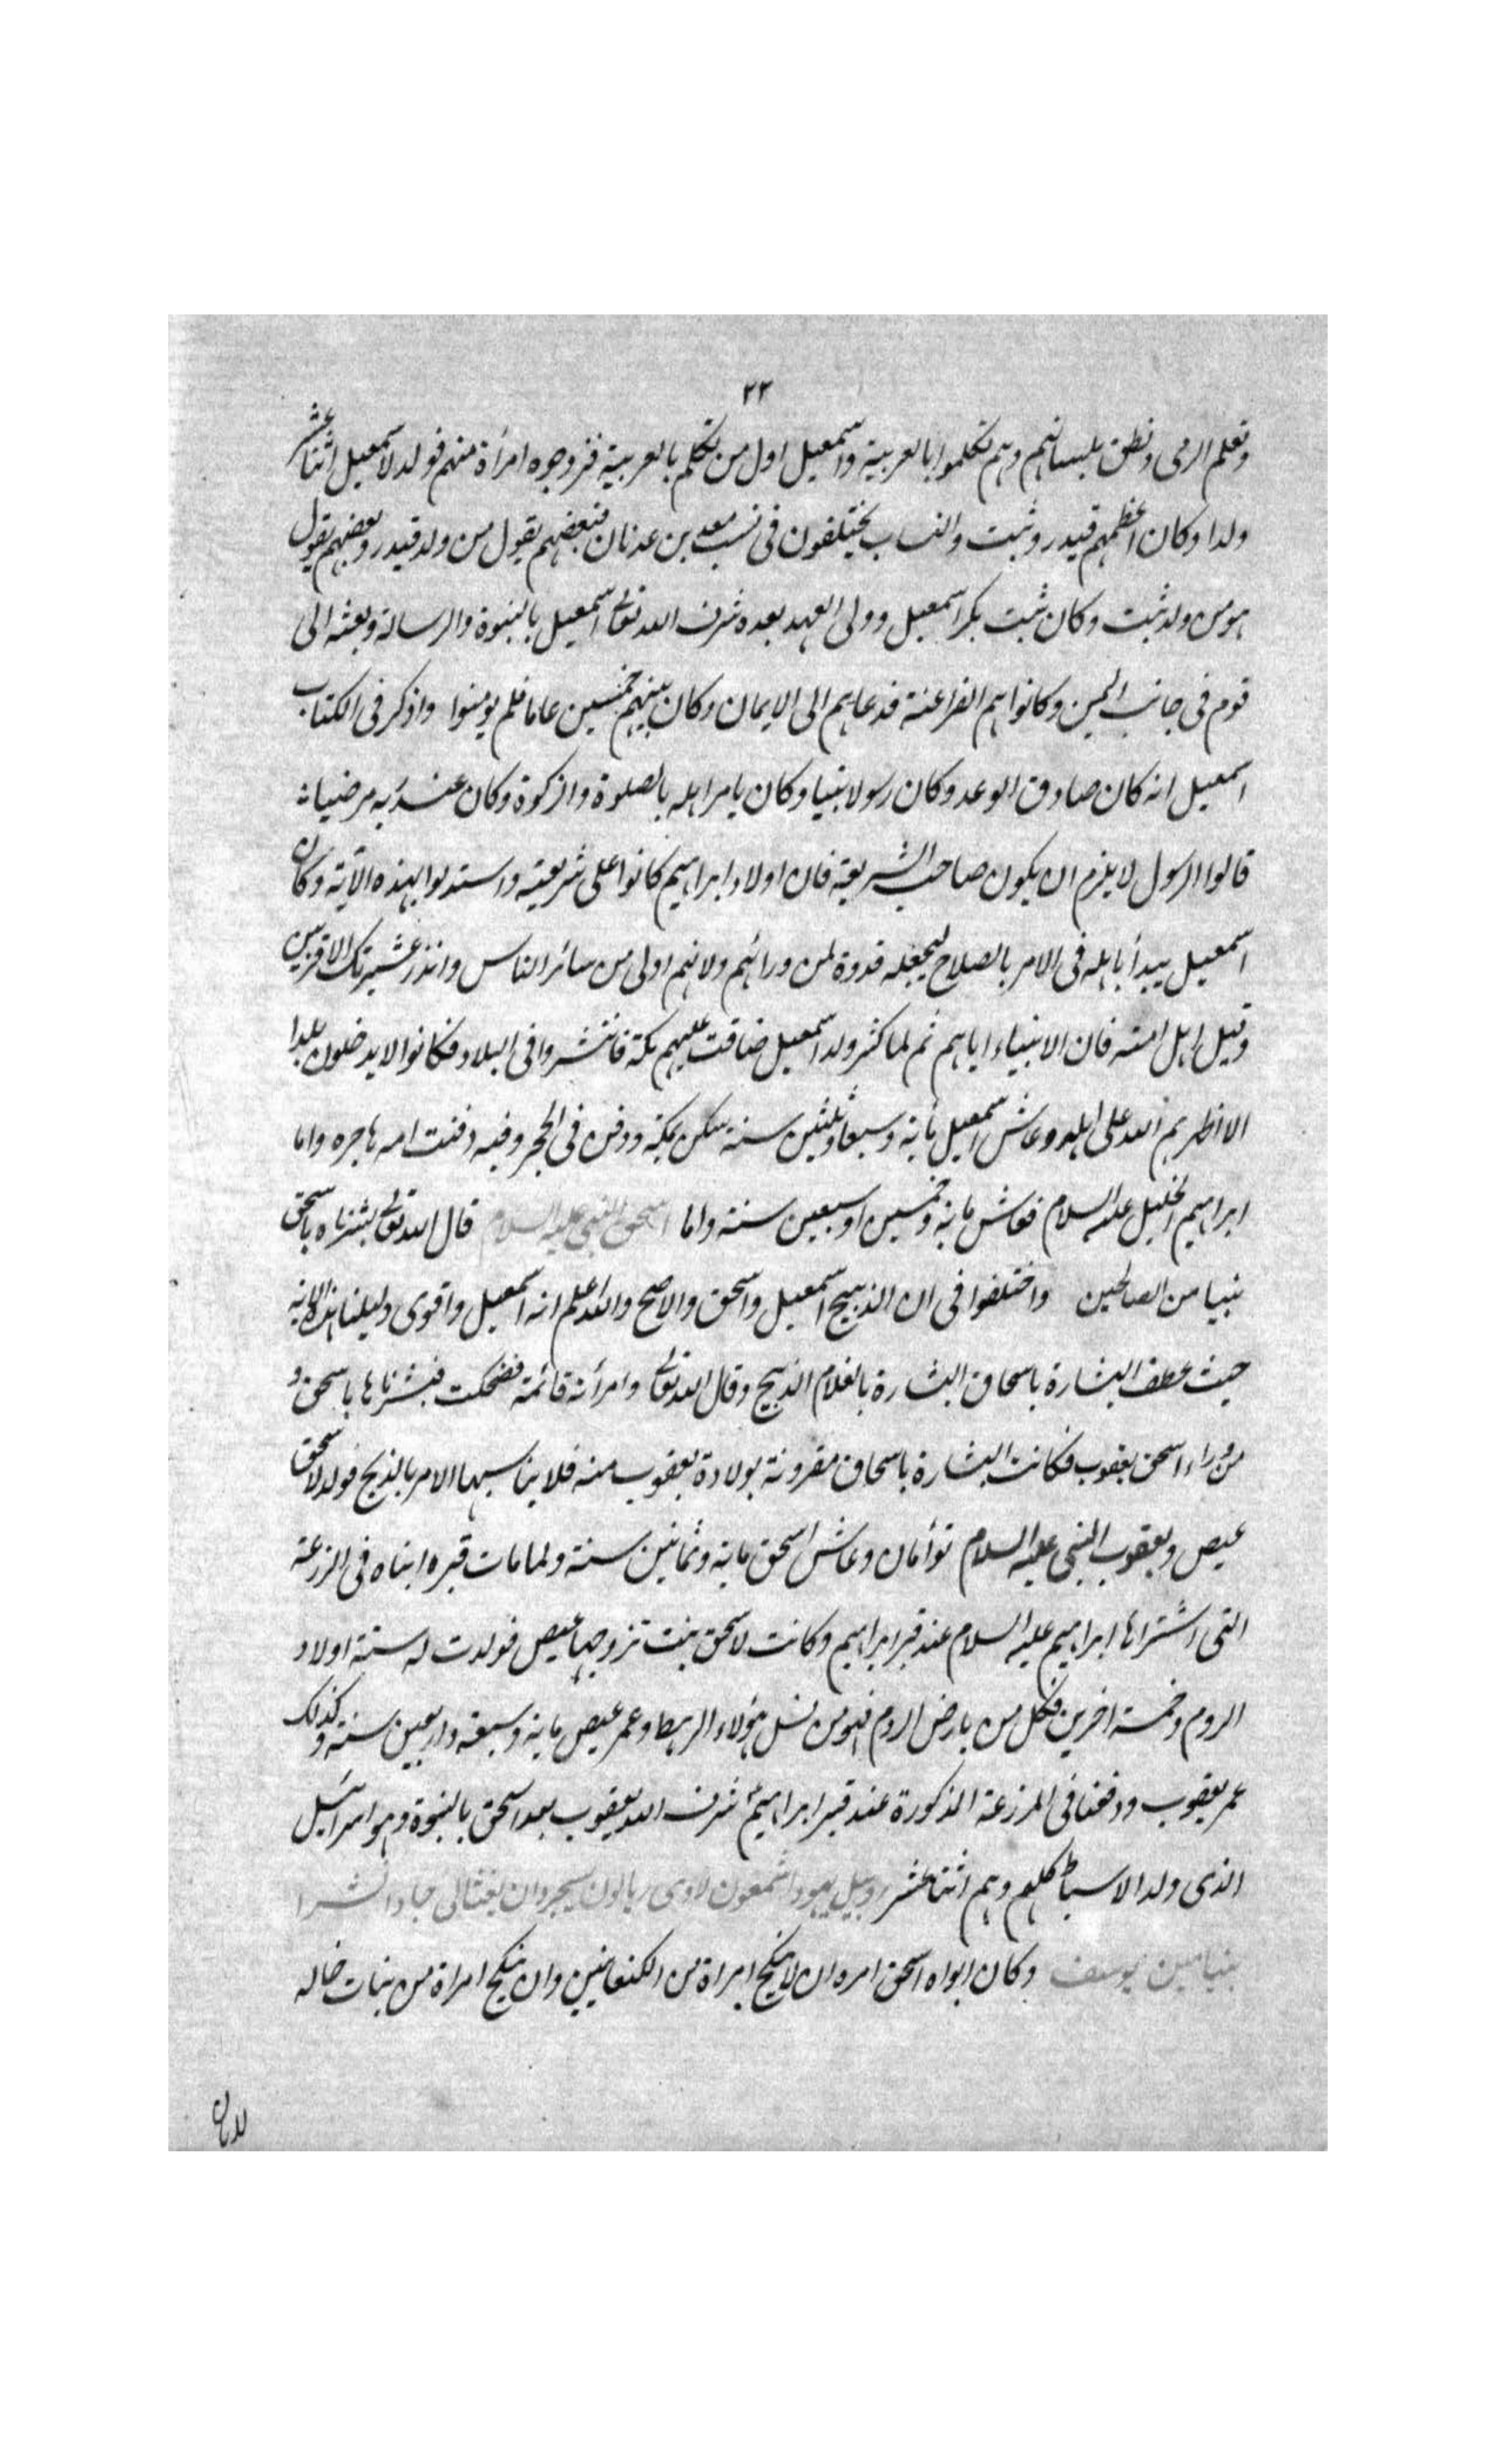 ٢٢
وتعلم الرمى ونطق بلسانهم وهم تكلموا بالعربية واسمعيل اول من تكلم بالعربية فزوجوه امرأة منهم فولد لاسمعيل اثنا عشر
ولدا وكان اعظمهم قيدر وثبت والنساب يختلفون فى نسب معد بن عدنان فبعضهم يقول من ولد قيدر وبعضهم يقول
هو من ولد ثبت وكان ثبت بكر اسمعيل وولى العهد بعده شرف الله تعالى اسمعيل بالنبوة والرسالة وبعثه الى
قوم فى جانب اليمن وكانوا هم الفراعنة فدعاهم الى الايمان وكان بينهم خمسين عاما فلم يومنوا واذكر فى الكتاب
اسمعيل انه كان صادق الوعد وكان رسولا نبيا وكان يامر اهله بالصلوة والزكوة وكان عند ربه مرضيا
قالوا الرسول لا يلزم ان يكون صاحب الشريعة فان اولاد ابراهيم كانوا على شريعته واستدلوا بهذه الآية وكان
اسمعيل يبدأ باهله فى الامر بالصلاح ليجعله قدوة لمن ورائهم ولانهم اولى من سائر الناس وانذر عشيرتك الاقربين
وقيل اهل امته فان الانبياء اياهم ثم لما كثر ولد اسمعيل ضاقت عليهم مكة فانتشروا فى البلاد فكانوا لا يدخلون بلدا
الا اظهرهم الله على اهله وعاش اسمعيل مأية وسبعا وثلثين سنة سكن بمكة ودفن فى الحجر وفيه دفنت امه هاجره واما
ابراهيم الخليل عليه السلام فعاش ماية وخمسين او سبعين سنة واما اسحق النبى عليه السلام قال الله تعالى بشرناه باسحق
نبيا من الصالحين واختلفوا فى ان الذبيح اسمعيل واسحق والاصح والله اعلم انه اسمعيل واقوى دليلنا هذه الاية
حيث عطف البشارة باسحاق البشارة بالغلام الذبيح وقال الله تعالى وامرأته قائمة فضحكت فبشرناها باسحق و
من وراء اسحق يعقوب فكانت البشارة باسحاق مقرونة بولادة يعقوب منه فلا يناسبها الامر بالذبح فولد لاسحق
عيص ويعقوب النبى عليه السلام توأمان وعاش اسحق ماية وثمانين سنة ولما مات قبره ابناه فى المزرعة
التى اشتراها ابراهيم عليه السلام عند قبر ابراهيم وكانت لاسحق بنت تزوجها عيص فولدت له ستة اولاد
الروم وخمسة اخرين فكل من بارض الروم فهو من نسل هؤلاء الرهط وعمر عيص ماية وسبعة واربعين سنة وكذلك
عمر يعقوب ودفنا فى المزرعة المذكورة عند قبر ابراهيم شرف الله يعقوب بعد اسحق بالنبوة وهو اسرائيل
الذى ولد الاسباط كلهم وهم اثنا عشر روبيل يهودا شمعون لاوى ربالون يسجر وان نفتالى جادا اشرا
بنيامين يوسف وكان ابواه اسحق امره ان لا ينكح امراة من الكنعانيين وان ينكح امراة من بنات خاله
لابان